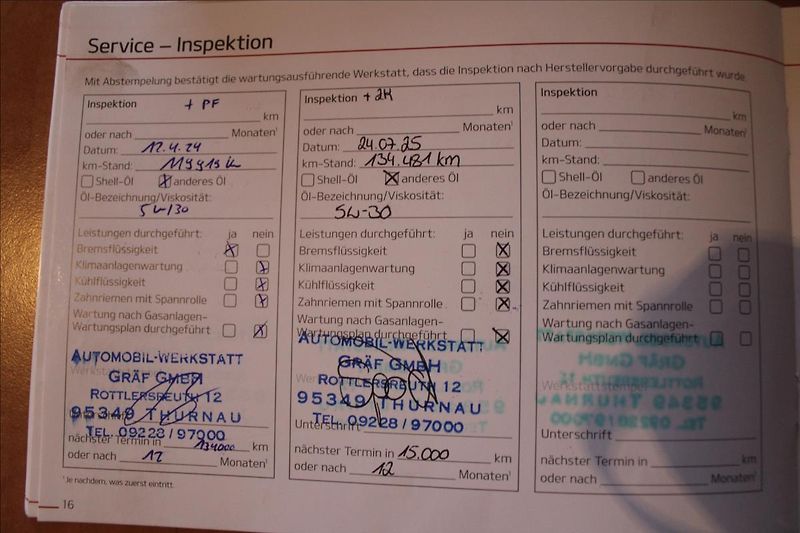 Service – Inspektion
Mit Abstempelung bestätigt die wartungsausführende Werkstatt, dass die Inspektion nach Herstellervorgabe durchgeführt wurde.
Inspektion + PF
km
oder nach Monaten¹
Datum: 12.4.24
km-Stand:
Shell-Öl anderes Öl
Öl-Bezeichnung/Viskosität:
5W/30
Leistungen durchgeführt: ja nein
Bremsflüssigkeit
Klimaanlagenwartung
Kühlflüssigkeit
Zahnriemen mit Spannrolle
Wartung nach Gasanlagen-
Wartungsplan durchgeführt
AUTOMOBIL-WERKSTATT
GRÄF GMBH
ROTTLERSREUTH 12
95349 THURNAU
TEL. 09228/97000
nächster Termin in 134000 km
oder nach 12 Monaten¹
¹Je nachdem, was zuerst eintritt.
16
Inspektion +
km
oder nach Monaten¹
Datum: 24.07.25
km-Stand: 134.481 km
Shell-Öl anderes Öl
Öl-Bezeichnung/Viskosität:
5W-30
Leistungen durchgeführt: ja nein
Bremsflüssigkeit
Klimaanlagenwartung
Kühlflüssigkeit
Zahnriemen mit Spannrolle
Wartung nach Gasanlagen-
Wartungsplan durchgeführt
AUTOMOBIL-WERKSTATT
GRÄF GMBH
ROTTLERSREUTH 12
95349 THURNAU
TEL. 09228/97000
Unterschrift
nächster Termin in 15.000 km
oder nach 12 Monaten¹
Inspektion
km
oder nach Monaten¹
Datum:
km-Stand:
Shell-Öl anderes Öl
Öl-Bezeichnung/Viskosität:
Leistungen durchgeführt: ja nein
Bremsflüssigkeit
Klimaanlagenwartung
Kühlflüssigkeit
Zahnriemen mit Spannrolle
Wartung nach Gasanlagen-
Wartungsplan durchgeführt
Werkstattstempel
Unterschrift
nächster Termin in km
oder nach Monaten¹